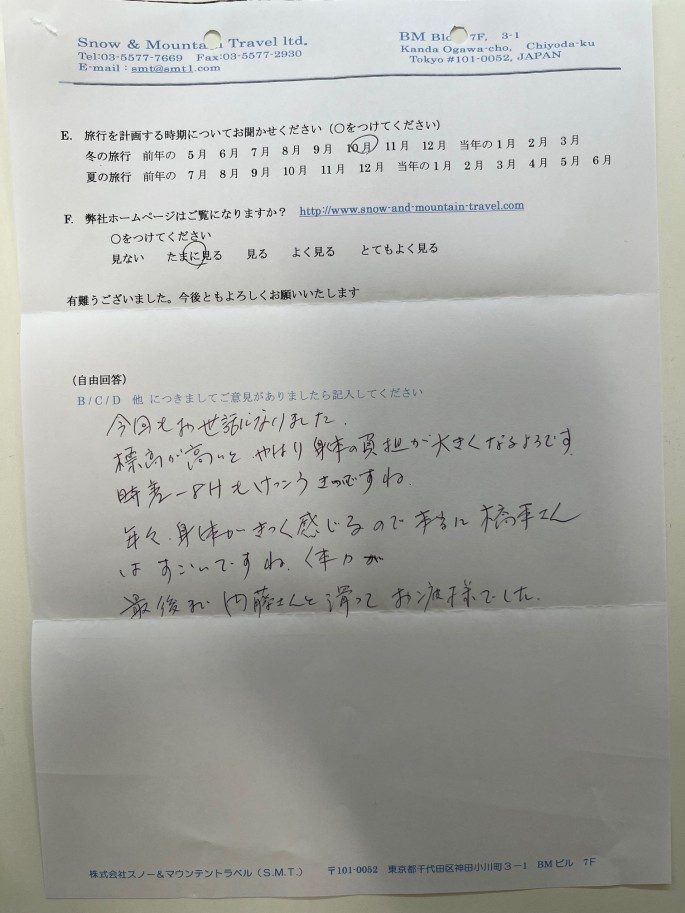 Snow & Mountain Travel ltd.
Tel:03-5577-7669 Fax:03-5577-2930
E-mail : smt@smt1.com
BM Bldg 7F, 3-1
Kanda Ogawa-cho, Chiyoda-ku
Tokyo #101-0052, JAPAN
E. 旅行を計画する時期についてお聞かせください（○をつけてください）
冬の旅行 前年の 5月 6月 7月 8月 9月 10月 11月 12月 当年の1月 2月 3月
夏の旅行 前年の 7月 8月 9月 10月 11月 12月 当年の1月 2月 3月 4月 5月 6月
F. 弊社ホームページはご覧になりますか？ http://www.snow-and-mountain-travel.com
○をつけてください
見ない たまに見る 見る よく見る とてもよく見る
有難うございました。今後ともよろしくお願いいたします
（自由回答）
B/C/D 他 につきましてご意見がありましたら記入してください
今回もお世話になりました.
標高が高いと やはり 身体の負担が大きくなるようです
時差－8Hもけっこうきついですね.
年々、身体がきつく感じるので 本当に 橋本さん
はすごいですね、体力が
最後まで 内藤さんと滑って お疲様でした.
株式会社スノー&マウンテントラベル（S.M.T.） 〒101-0052 東京都千代田区神田小川町3－1 BMビル 7F